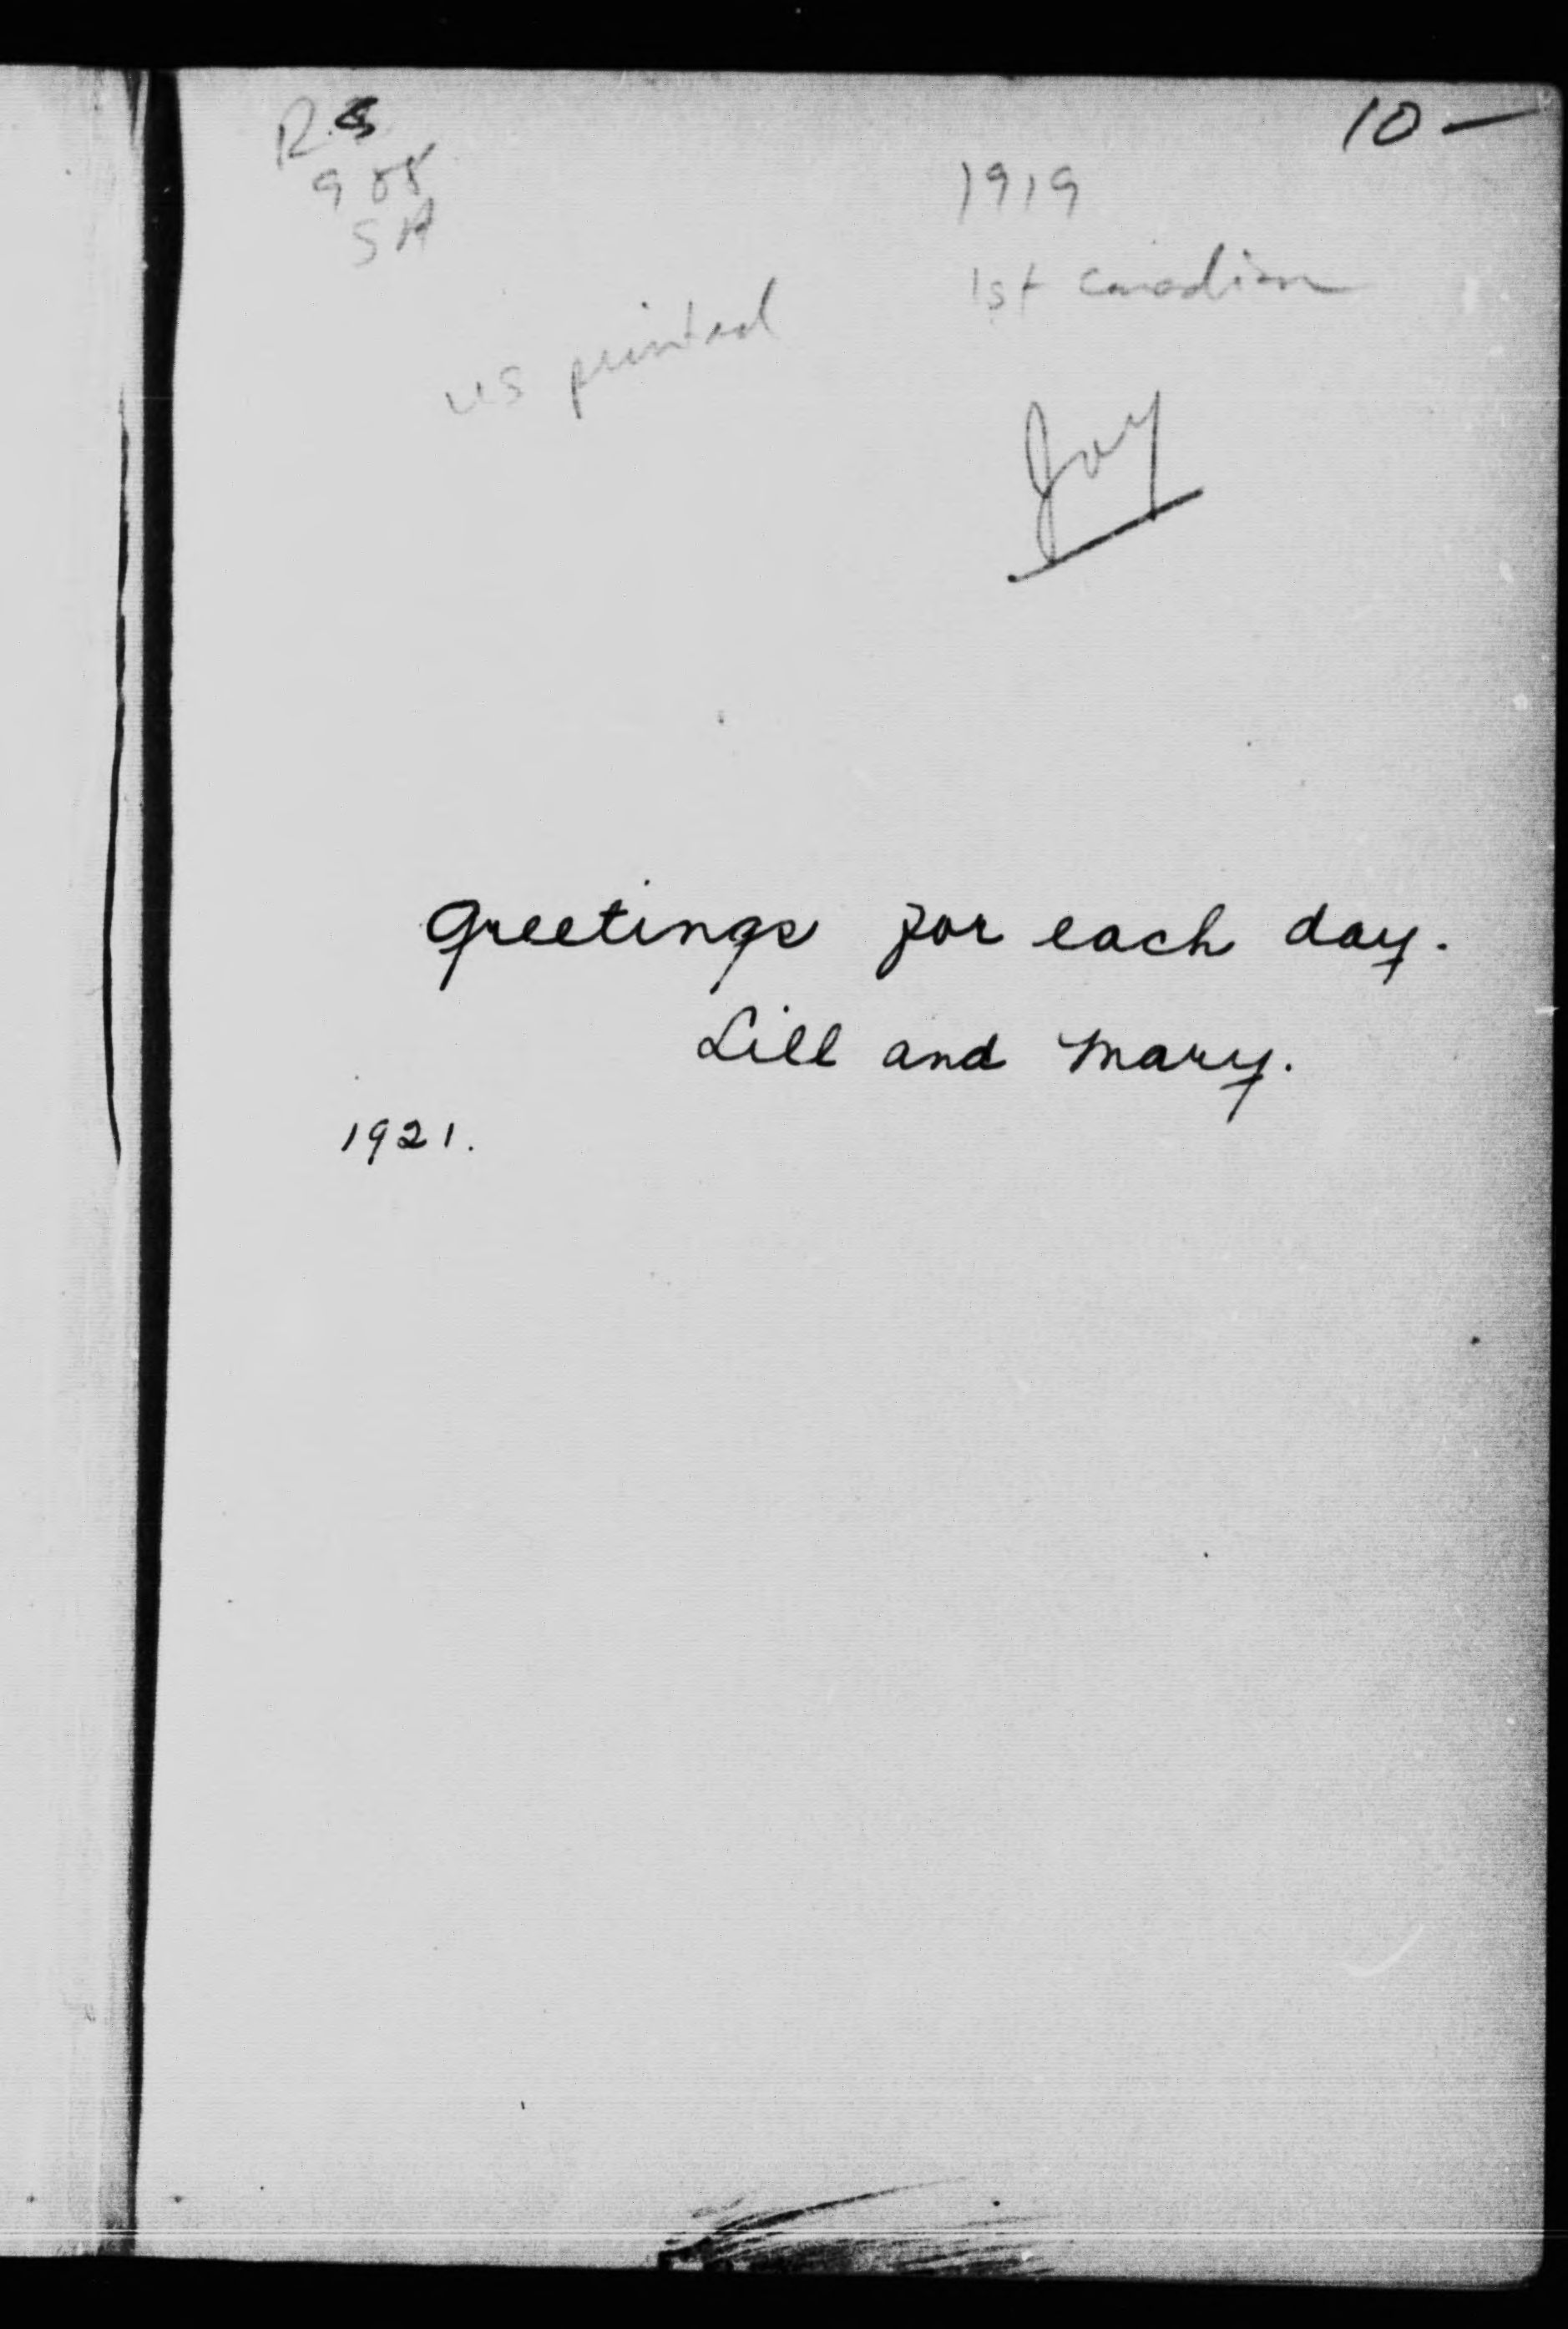 10 —
1919
1st canadian
us printed
Joy
Greetings for each day.
Lill and Mary.
1921.